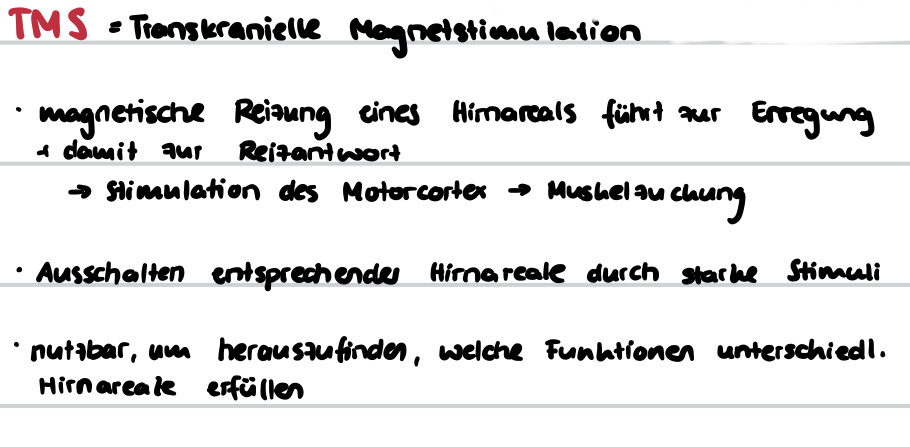 TMS = Transkranielle Magnetstimulation
· magnetische Reizung eines Hirnareals führt zur Erregung
+ damit zur Reizantwort
→ Stimulation des Motorcortex → Muskelzuckung
· Ausschalten entsprechender Hirnareale durch starke Stimuli
· nutzbar, um herauszufinden, welche Funktionen unterschiedl.
Hirnareale erfüllen